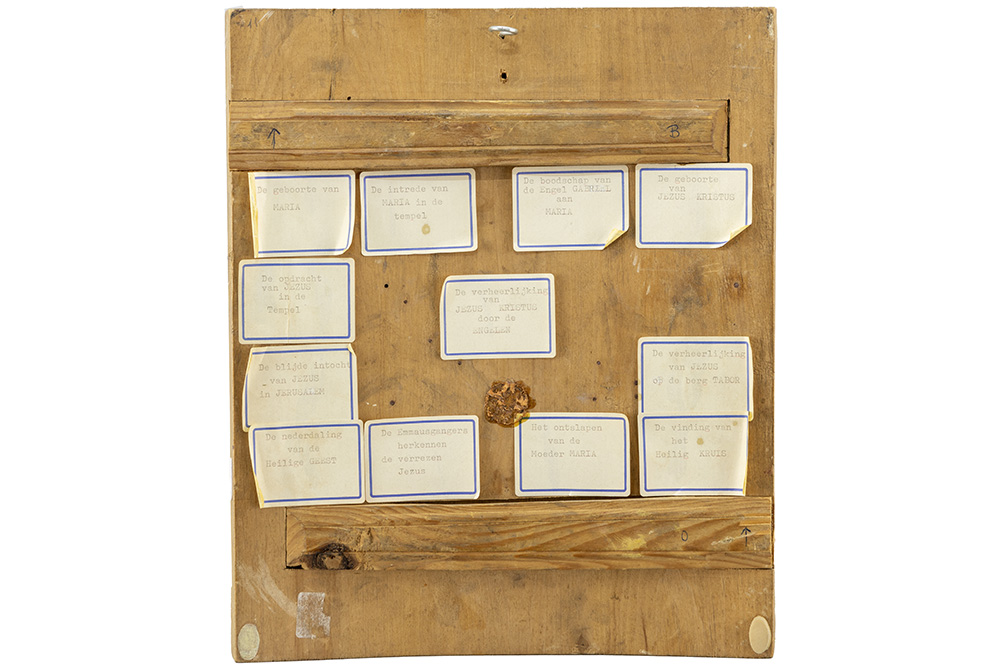 B
De geboorte van
MARIA
De intrede van
MARIA in de
tempel
De boodschap van
de Engel GABRIEL
aan
MARIA
De geboorte
van
JEZUS KRISTUS
De opdracht
van JEZUS
in de
Tempel
De verheerlijking
van
JEZUS KRISTUS
door de
ENGELEN
De blijde intocht
van JEZUS
in JERUSALEM
De verheerlijking
van JEZUS
op de berg TABOR
De nederdaling
van de
Heilige GEEST
De Emmausgangers
herkennen
de verrezen
Jezus
Het ontslapen
van de
Moeder MARIA
De vinding van
het
Heilig KRUIS
O